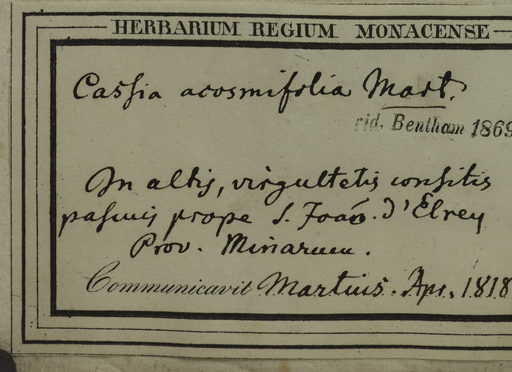 HERBARIUM REGIUM MONACENSE
Cassia acosmifolia Mart.
vid. Bentham 1869
In altis, virgultetis consitis
pascuis prope S. Joaó. d'Elrey
Prov. Minarum.
Communicavit Martius. Apr. 1818